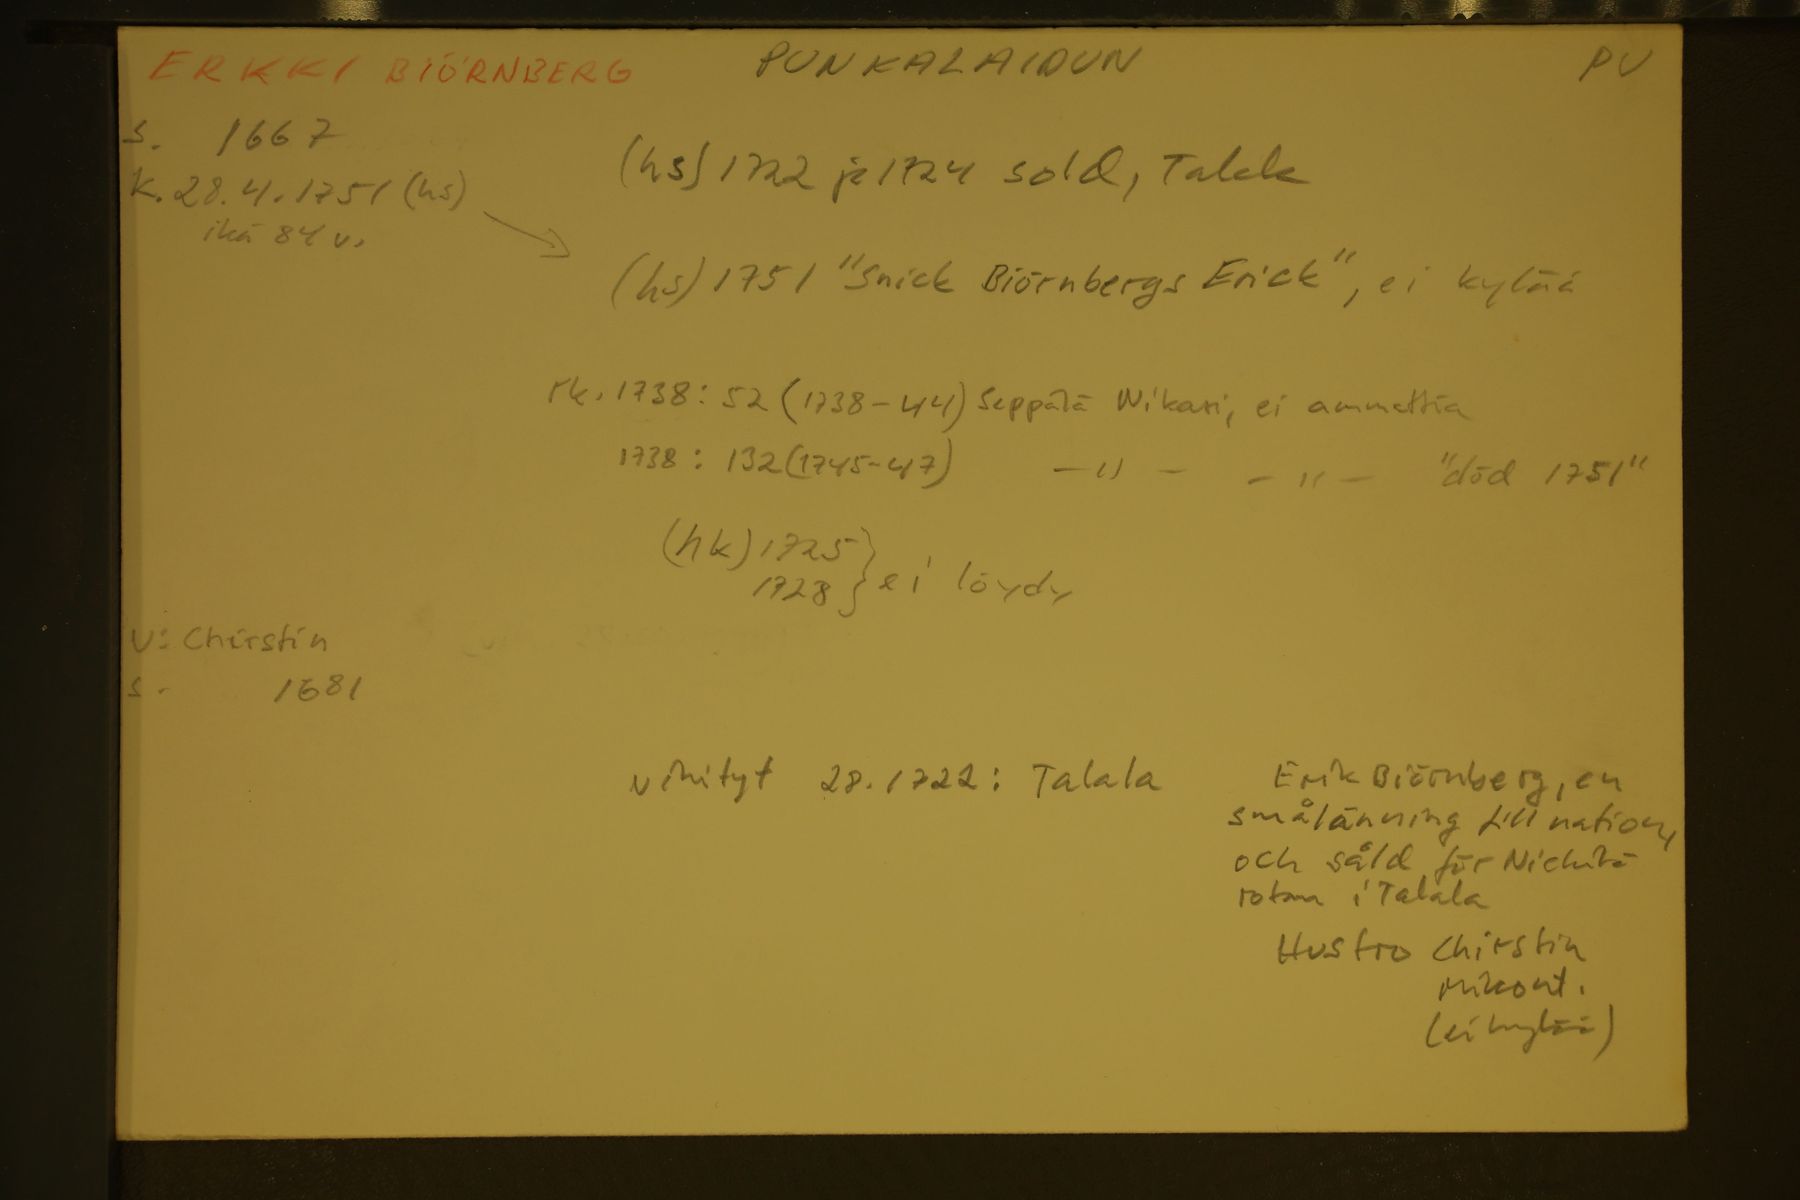 ERKKI BIÖRNBERG PUNKALAIDUN PU
s. 1667
k. 28.4.1751 (hs)
ikä 84 v.
(hs) 1722 ja 1724 sold, Talala
(hs) 1751 "Snick Biörnbergs Erick", ei kylää
rk. 1738: 52 (1738-44) Seppälä Nikari, ei ammattia
1738: 132 (1745-47) -"- -"- "död 1751"
(hk) 1725
1728 } ei löydy
v: Chirstin
s. 1681
vihityt 28.1722: Talala Erik Biörnberg, en
smålänning till nation,
och såld för Nichilä
rotan i Talala
Hustro Chirstin
(ei kylää)